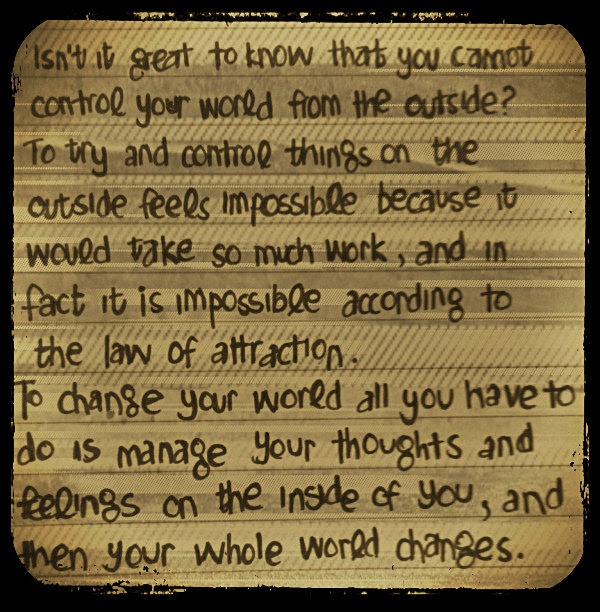 Isn't it great to know that you cannot
control your world from the outside?
To try and control things on the
outside feels impossible because it
would take so much work, and in
fact it is impossible according to
the law of attraction.
To change your world all you have to
do is manage your thoughts and
feelings on the inside of you, and
then your whole world changes.